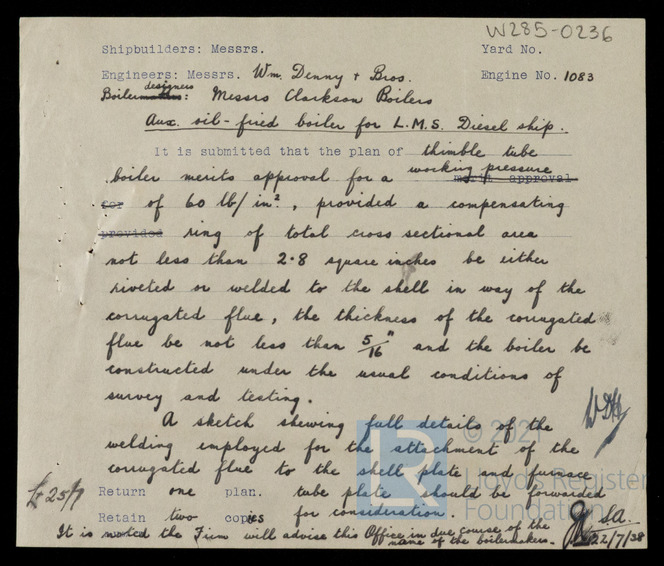 W285-0236
Shipbuilders: Messrs. Yard No.
Engineers: Messrs. Wm. Denny + Bros. Engine No. 1083
designers
Boilermakers: Messrs Clarkson Boilers
Aux. oil-fired boiler for L.M.S. Diesel ship.
It is submitted that the plan of thimble tube
boiler merits approval for a working pressure merit approval
for of 60 lb/in², provided a compensating
provided ring of total cross sectional area
not less than 2.8 square inches be either
riveted or welded to the shell in way of the
corrugated flue, the thickness of the corrugated
flue be not less than 5/16" and the boiler be
constructed under the usual conditions of
survey and testing.
A sketch shewing full details of the
welding employed for the attachment of the
corrugated flue to the shell plate and furnace
Return one plan. tube plate should be forwarded
Retain two copies for consideration.
It is noted the Firm will advise this Office in due course of the
name of the boilermakers.
25/7
22/7/38
© 2021
LR
Lloyd's Register
Foundation